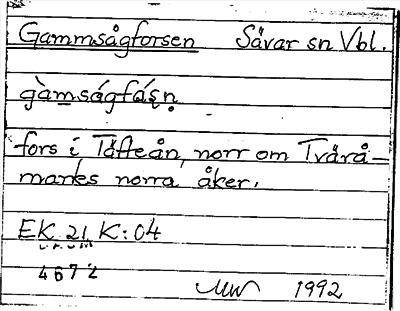 Gammsågforsen Sävar sn Vbl.
gàmságfáṣṇ
fors i Täfteån, norr om Tvärå-
marks norra åker.
EK 21 K:04
4672
MW 1992